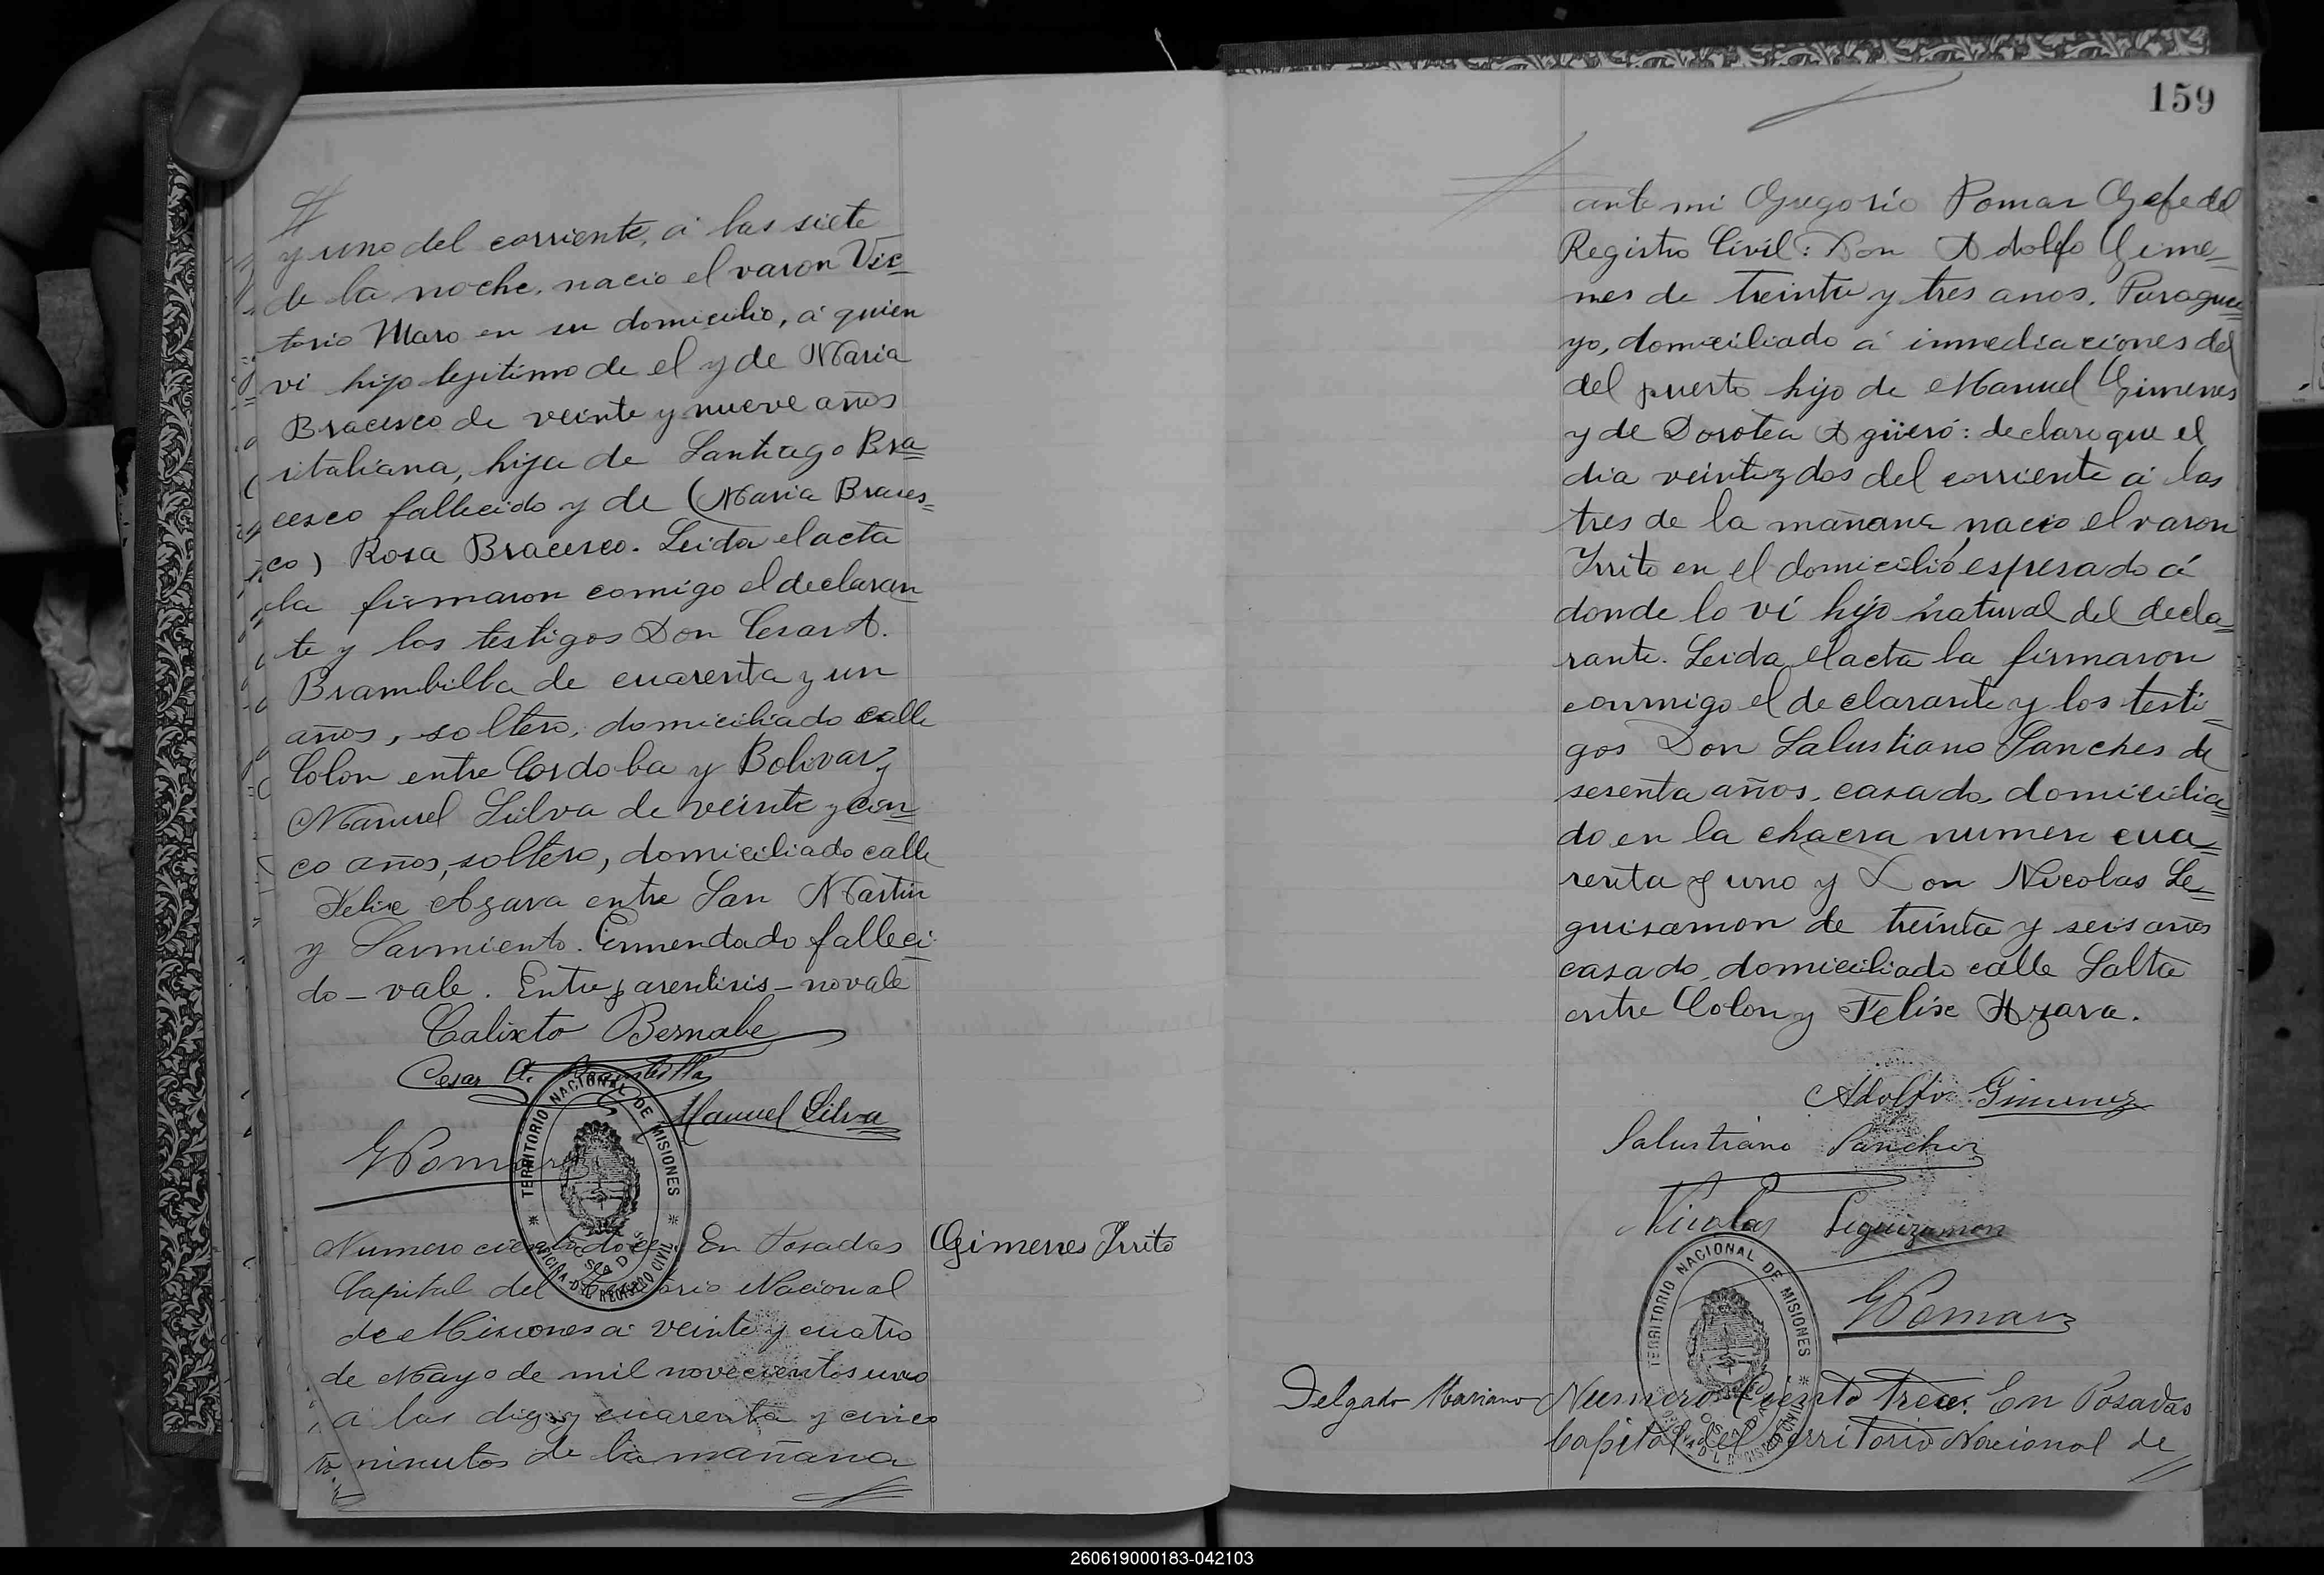 y uno del corriente, á las siete
de la noche, nacio el varon Vic=
torio Maro en su domicilio, á quien
vi hijo legitimo de el y de Maria
Bracesco de veinte y nueve años
italiana, hija de Santiago Bra=
cesco fallecido y de (Maria Braces=
co) Rosa Bracesco. Leida el acta
la firmaron comigo el declaran
te y los testigos Don Cesar A.
Brambilla de cuarenta y un
años, soltero, domiciliado calle
Colon entre Cordoba y Bolivar y
Manuel Silva de veinte y cin=
co años, soltero, domiciliado calle
Felix Azara entre San Martin
y Sarmiento. Enmendado falleci-
do - vale. Entre parentisis - no vale
Calixto Bernabe
Cesar A. Brambilla
Manuel Silva
GPomar
TERRITORIO NACIONAL DE MISIONES
OFICINA DEL REGISTRO CIVIL
POSADAS
Numero ciento doce: En Posadas
Gimenes Irrito
Capital del Territorio Nacional
de Misiones á veinte y cuatro
de Mayo de mil novecientos uno
á las diez y cuarenta y cinco
minutos de la mañana
159
ante mi Gregorio Pomar Gefe del
Registro Civil: Don Adolfo Gime=
nes de treinta y tres anos, Paragua=
yo, domiciliado á inmediaciones del
del puerto hijo de Manuel Gimenes
y de Dorotea Agüero: declaro que el
dia veinte y dos del corriente á las
tres de la mañana nacio el varon
Irrito en el domicilió espresado á
donde lo ví hijo natural del decla=
rante. Leida el acta la firmaron
conmigo el declarante y los testi=
gos Don Salustiano Sanches de
sesenta años, casado, domicilia=
do en la chacra numero cua=
renta y uno y Don Nicolas Le=
guisamon de treinta y seis años
casado, domiciliado calle Salta
entre Colon y Felix Azara.
Adolfo Gimenez
Salustiano Sanchez
Nicolas Leguizamon
GPomar
TERRITORIO NACIONAL DE MISIONES
OFICINA DEL REGISTRO CIVIL
POSADAS
Delgado Mariano
Numero Ciento trece: En Posadas
Capital del Territorio Nacional de
260619000183-042103